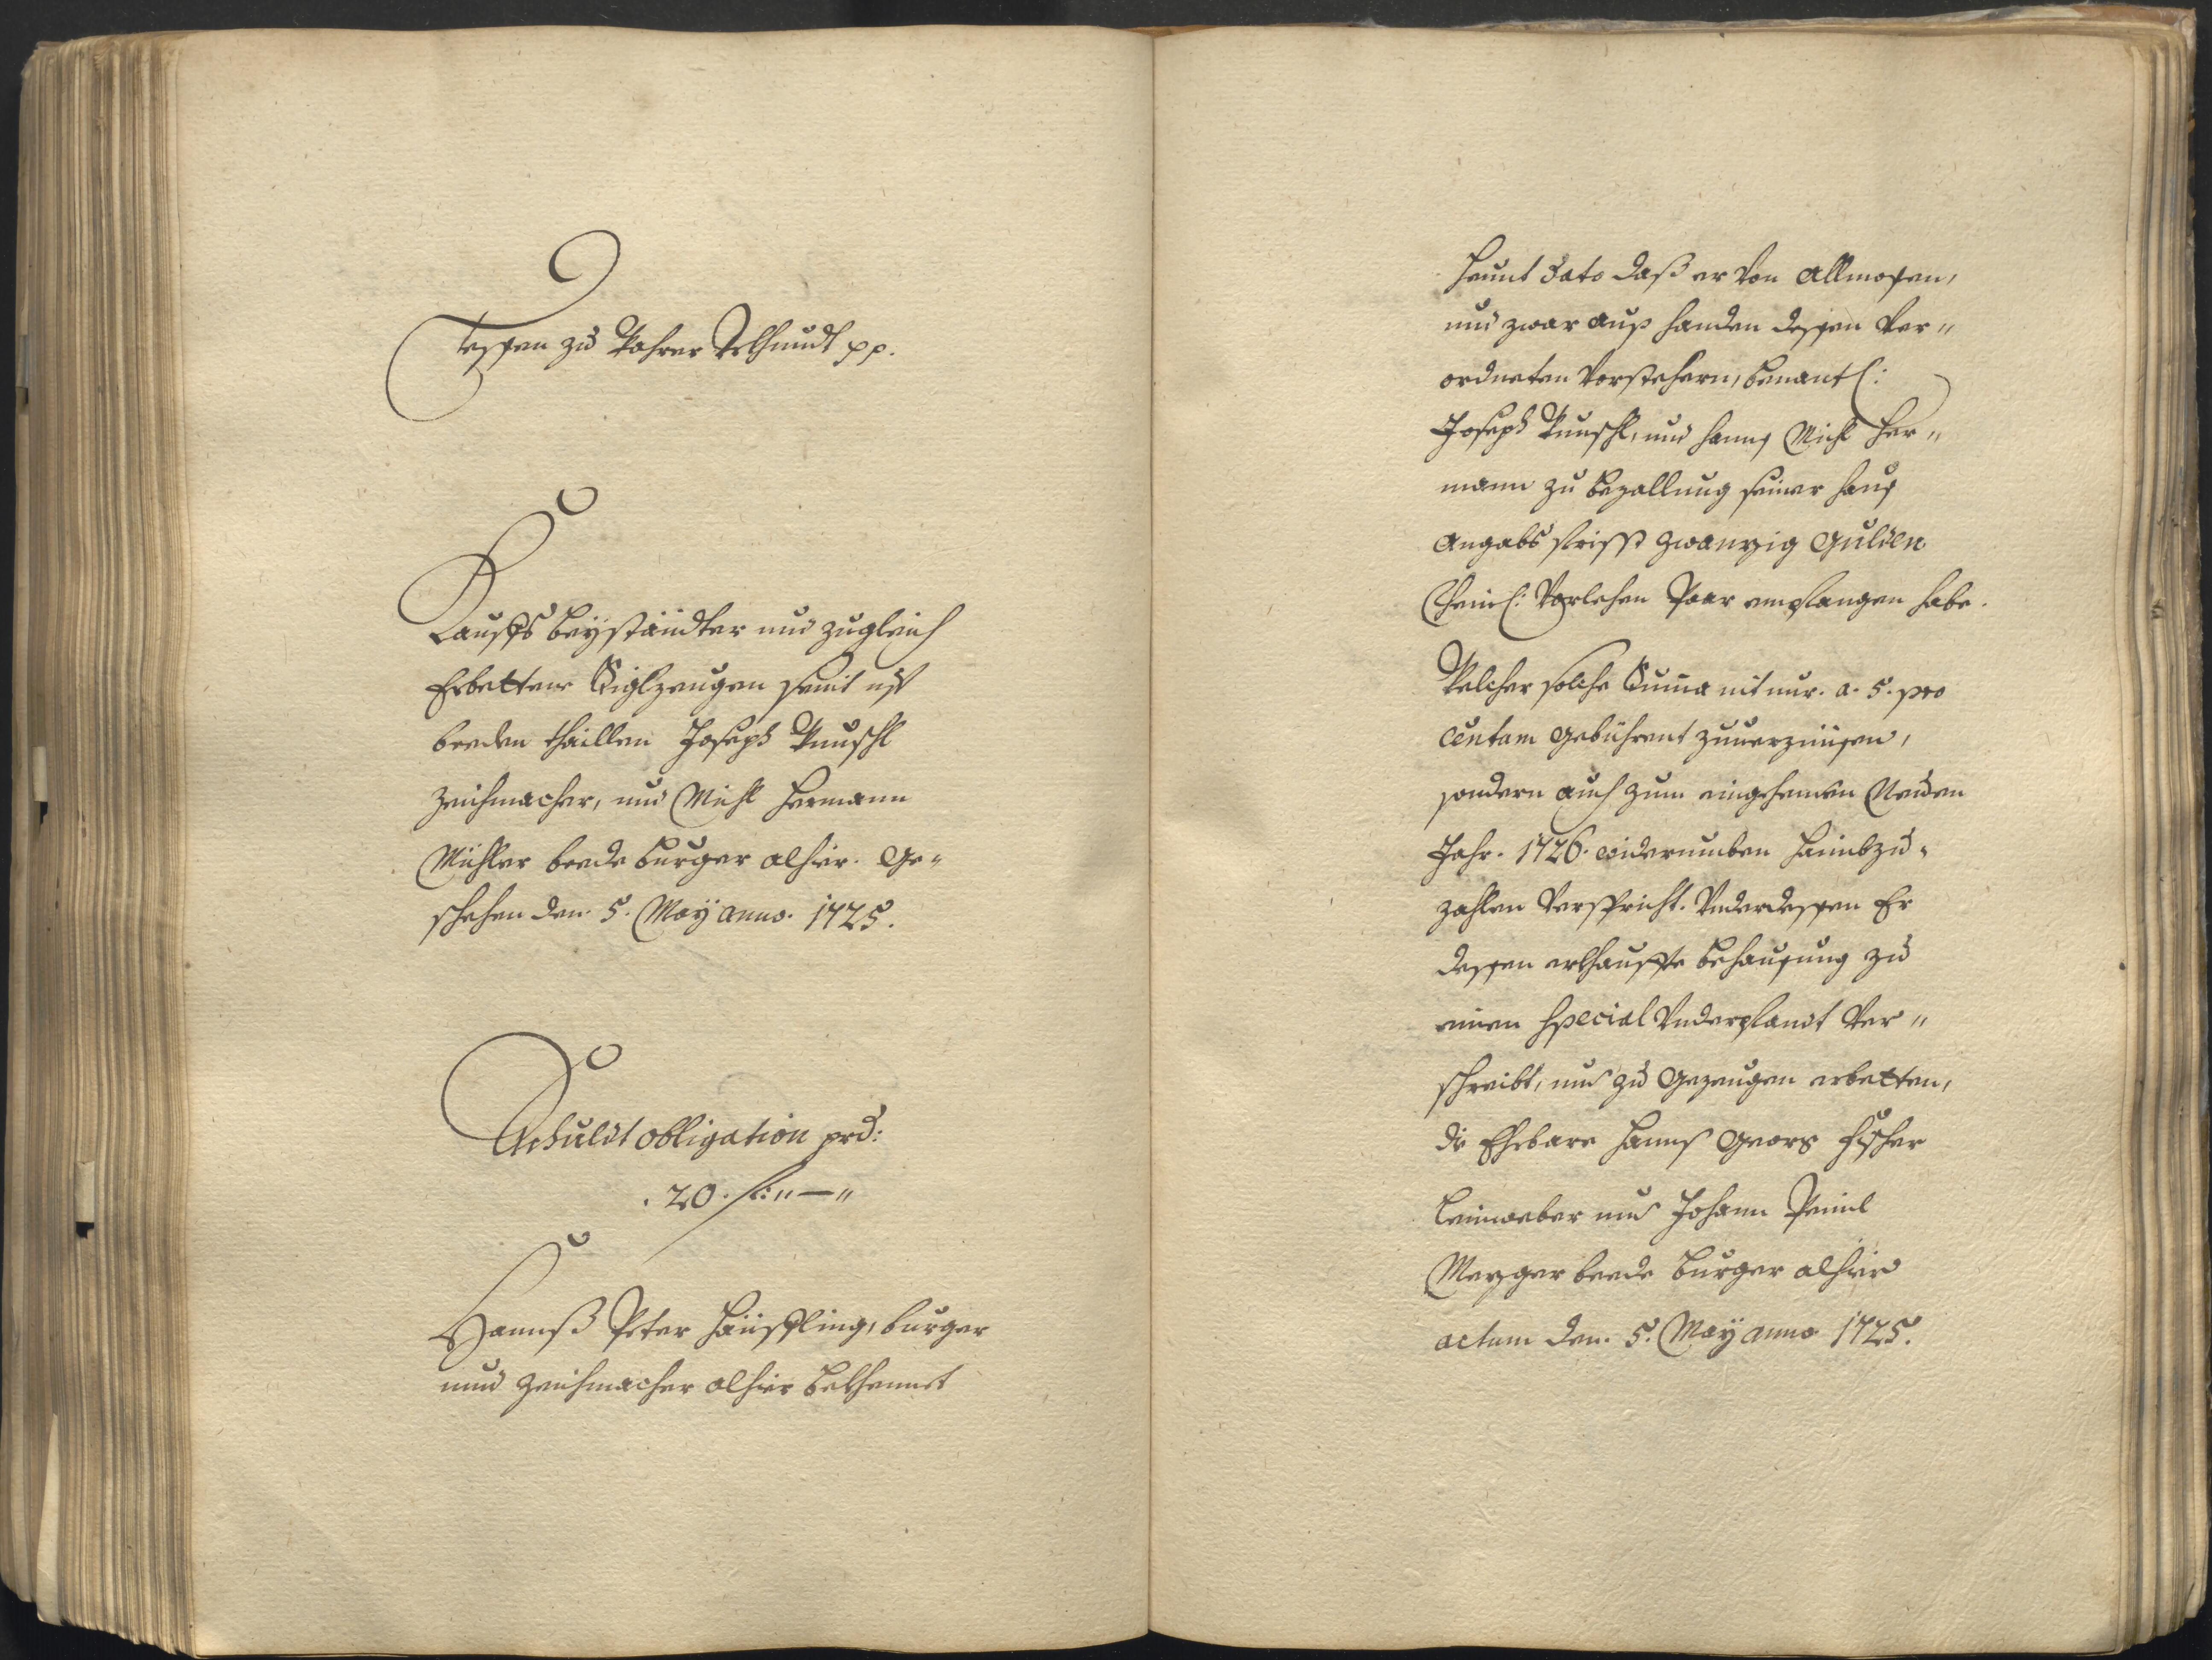 Dessen zu Wahrer Urkhundt pp.
Kauffs Beyständter und zugleich
Erbettene Siglzeugen seint uff
beeden thaillen Joseph
Zeichmacher, und Michl Hermann
Mühler beede Burger alhier. Ge„
schehen den 5. May anno. 1725.
Schuldt obligation prd:
. 20. fl: „ — „
Hannß Peter Häuffling, burger
und Zeichmacher alhier bekhennet
heunt dato daß er Von Allmosen,
und zwar auß handen dessen Ver„
ordneten Vorstehern, benantl:
Joseph und hannß Michl Her„
mann zu bezallung seiner hauß
Angabs frisst zwanzig Gulden
Rheinl: Vorlehen Paar empfangen habe.
Welcher solche Suma nit nur. a. 5. pro
centum gebührent zuuerzünsen,
sondern auch zum eingehenden Neuen
Jahr. 1726. widerumben haimbzu„
zahlen Verspricht. Underdessen Er
dessen erkhauffte behausung zu
einen Special Underpfandt Ver„
schreibt, und zu Gezeugen erbetten,
die Ehrbare Hannß Georg Fischer
Leinweber und Johann
Mezger beede Burger alhier
actum den. 5. May anno 1725.